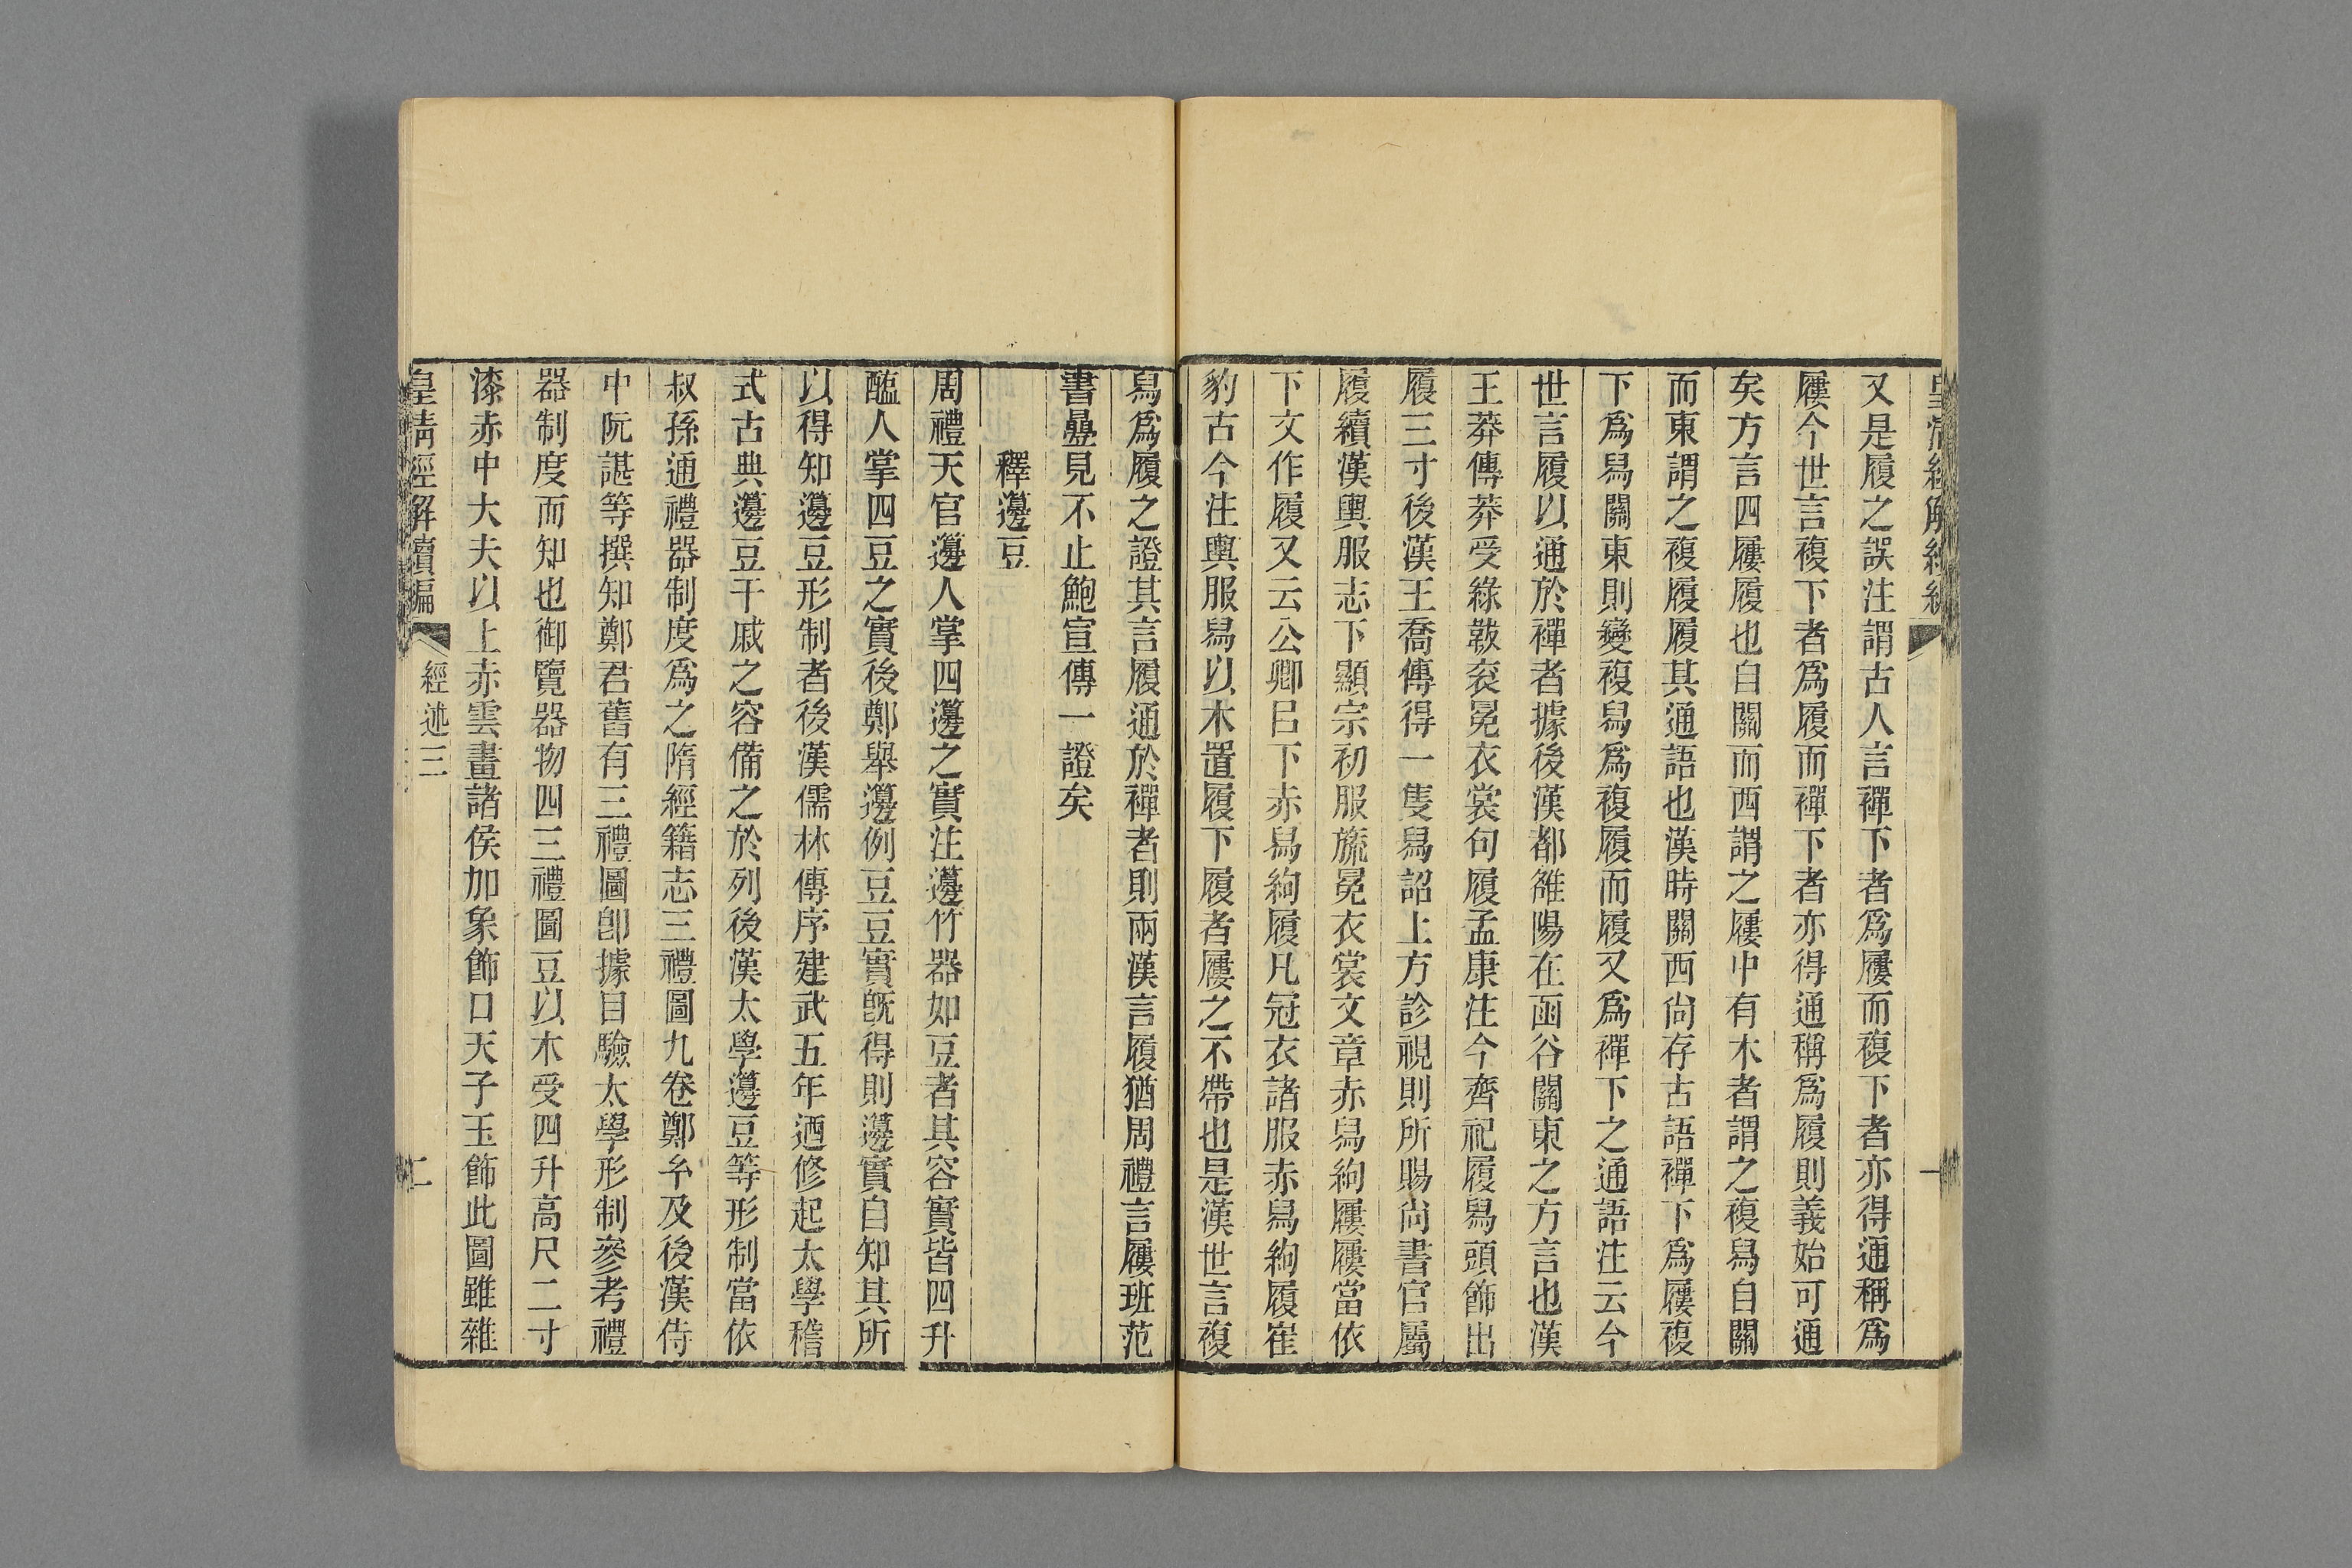 皇清經解續編
一
又是履之誤注謂古人言禪下者爲屨而複下者亦得通稱爲
屨今世言複下者爲履而禪下者亦得通稱爲履則義始可通
矣方言四屨履也自關而西謂之屨中有木者謂之複舄自關
而東謂之複履履其通語也漢時關西尙存古語禪下爲屨複
下爲舄關東則變複舄爲複履而履又爲禪下之通語注云今
世言履以通於禪者據後漢都雒陽在函谷關東之方言也漢
王莽傳莽受綠韍袞冕衣裳句履孟康注今齊祀履舄頭飾出
履三寸後漢王喬傳得一隻舄詔上方診視則所賜尙書官屬
履續漢輿服志下顯宗初服旒冕衣裳文章赤舄絇屨屨當依
下文作履又云公卿㠯下赤舄絇履凡冠衣諸服赤舄絇履崔
豹古今注輿服舄以木置履下履者屨之不帶也是漢世言複
舄爲履之證其言履通於禪者則兩漢言履猶周禮言屨班范
書疊見不止鮑宣傳一證矣
釋籩豆
周禮天官籩人掌四籩之實注籩竹器如豆者其容實皆四升
醢人掌四豆之實後鄭舉籩例豆豆實旣得則籩實自知其所
以得知籩豆形制者後漢儒林傳序建武五年迺修起太學稽
式古典籩豆干戚之容備之於列後漢太學籩豆等形制當依
叔孫通禮器制度爲之隋經籍志三禮圖九卷鄭玄及後漢侍
中阮諶等撰知鄭君舊有三禮圖卽據目驗太學形制參考禮
器制度而知也御覽器物四三禮圖豆以木受四升高尺二寸
漆赤中大夫以上赤雲畫諸侯加象飾口天子玉飾此圖雖雜
皇清經解續編
經述三
二